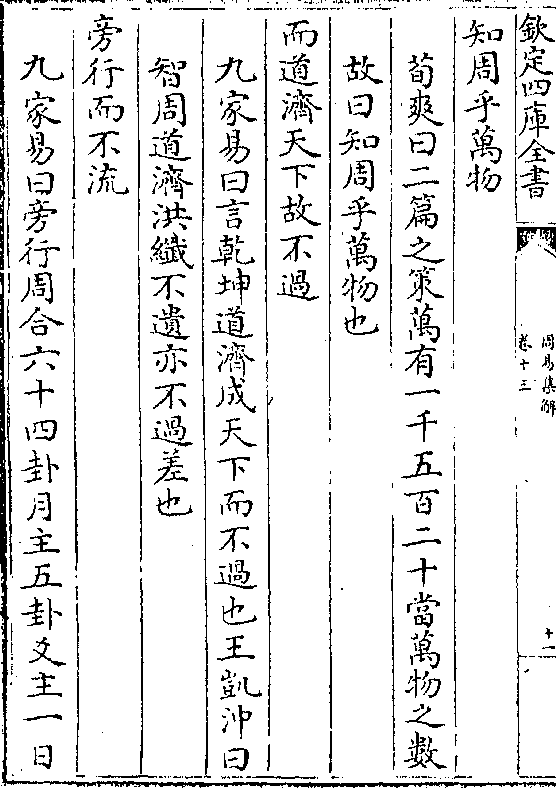 欽定四庫全書
周易集解
卷十三
十一
知周乎萬物
荀爽曰二篇之策萬有一千五百二十當萬物之數
故曰知周乎萬物也
而道濟天下故不過
九家易曰言乾坤道濟成天下而不過也王凱沖曰
智周道濟洪纖不遺亦不過差也
旁行而不流
九家易曰旁行周合六十四卦月主五卦爻主一日